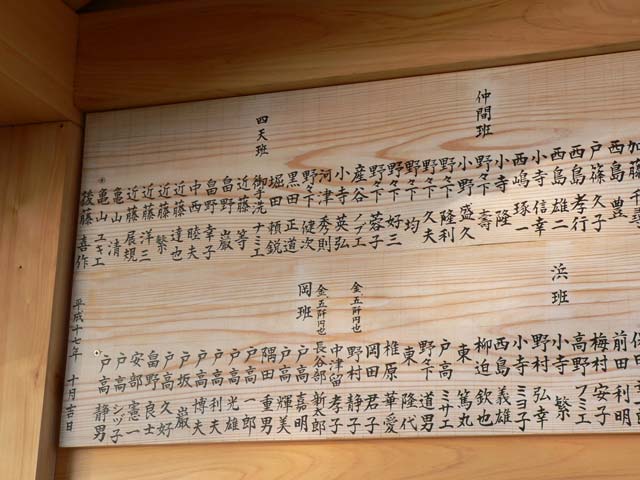 仲間班
加藤 豊
西 ミチ子
戸島 久子
西篠 孝行
西島 雄二
小寺 信幸
西嶋 琢一
小寺 隆
野々下 壽
小野 盛久
野々下 隆利
野々下 久夫
野々下 均
野々下 好三
産
小寺 英弘
河津 秀則
野々下 健次
黒田 正道
堀田 頼鋭
御手洗 ナミエ
四天班
近藤 等
畠野 巌
畠野 幸子
中西 睦夫
近藤 達也
近藤 繁
近藤 洋三
近藤 展規
亀山 清
亀山 ユキエ
後藤 喜作
浜班
前田 利明
梅村 安子
高野 フミエ
小寺 繁
野村 弘幸
小寺 ミヨ子
西島 義雄
柳迫 欽也
東 篤丸
戸高 ミサエ
野々下 道男
東 隆代
椎原 華愛
岡田 君子
金五阡円也
野村 静子
中津留 孝子
金五阡円也
長谷部 新太郎
岡班
戸高 嘉明
戸高 輝美
隅田 重男
戸高 一郎
戸高 光雄
戸高 利夫
戸高 博夫
戸坂 巌
戸高 久好
畠野 良士
安部 憲一
戸高 シヅ子
戸高 静男
平成十七年 十月吉日